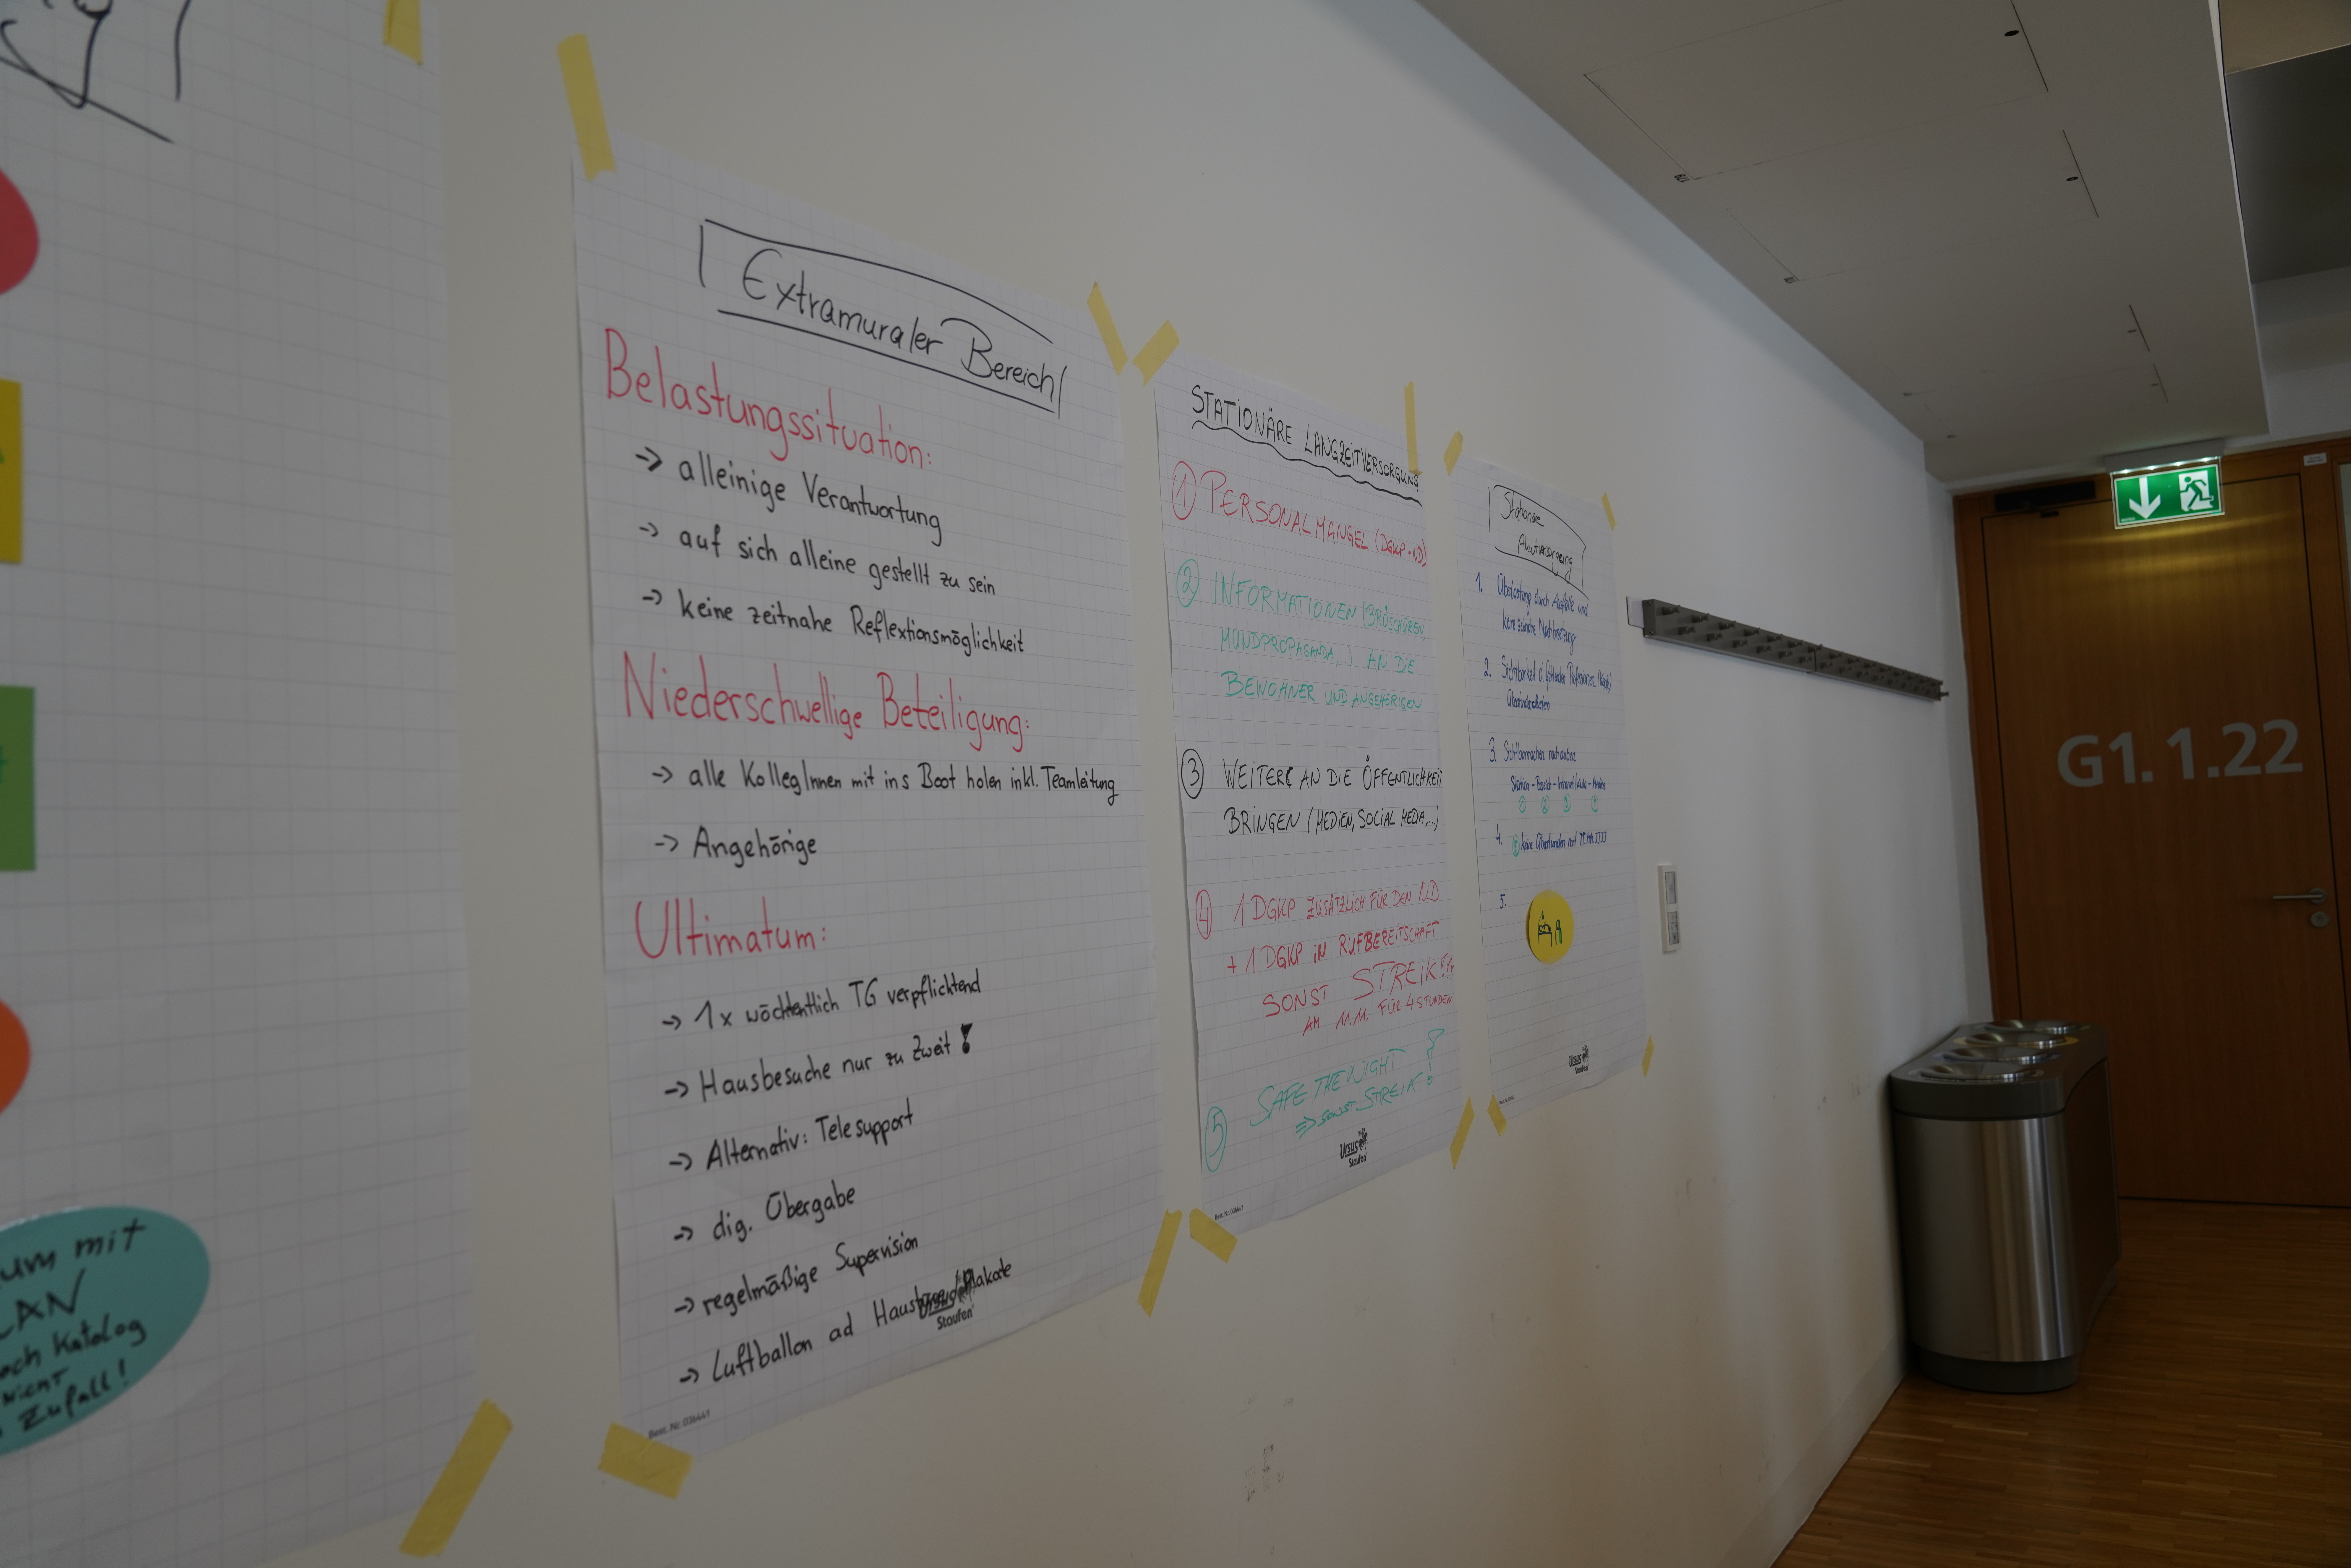 um mit
LAN
och Katalog
nicht
Zufall!
Extramuraler Bereich
Belastungssituation:
-> alleinige Verantwortung
-> auf sich alleine gestellt zu sein
-> keine zeitnahe Reflextionsmöglichkeit
Niederschwellige Beteiligung:
-> alle KollegInnen mit ins Boot holen inkl. Teamleitung
-> Angehörige
Ultimatum:
-> 1x wöchentlich TG verpflichtend
-> Hausbesuche nur zu Zweit!
-> Alternativ: Telesupport
-> dig. Übergabe
-> regelmäßige Supervision
-> Luftballon ad Haustüre/Plakate
Staufen
Best. Nr. 036441
STATIONÄRE LANGZEITVERSORGUNG
1 PERSONALMANGEL (DGKP-ND)
2 INFORMATIONEN (BROSCHÜREN,
MUNDPROPAGANDA,..) AN DIE
BEWOHNER UND ANGEHÖRIGEN
3 WEITERS AN DIE ÖFFENTLICHKEIT
BRINGEN (MEDIEN, SOCIAL MEDIA,..)
4 1 DGKP ZUSÄTZLICH FÜR DEN ND
+ 1 DGKP IN RUFBEREITSCHAFT
SONST STREIK!!!
AM 11.11. FÜR 4 STUNDEN
5 SAFE THE NIGHT
=> SONST STREIK!
Ursus
Staufen
Best. Nr. 036441
Stationäre
Akutversorgung
1. Überlastung durch Ausfälle und
keine zeitnahe Nachbesetzung
2. Sichtbarkeit d. fehlenden
Überstundenlisten
3. Sichtbarmachen nach außen
Station - Bereich - Intranet/ - Medien
1 2 3 4
4. 5 keine Überstunden mit
5.
Ursus
Staufen
G1.1.22